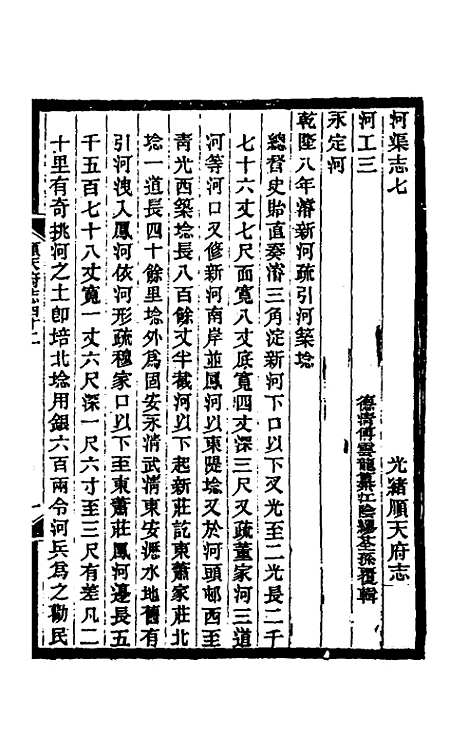 河渠志七　光緒順天府志
河工三　德清傅雲龍纂江陰繆荃孫覆輯
永定河
乾隆八年濬新河疏引河築埝
總督史貽直奏濬三角淀新河下口以下叉光至二光長二千
七十六丈七尺面寬八丈底寬四丈深三尺又疏董家河三道
河等河口又修新河南岸並鳳河以東隄埝又於河頭邨西至
靑光西築埝長八百餘丈半截河以下起新莊訖東蕭家莊北
埝一道長四十餘里埝外爲固安永淸武淸東安瀝水地舊有
引河洩入鳳河依河形疏穆家口以下至東蕭莊鳳河邊長五
千五百七十八丈寬一丈六尺深一尺六寸至三尺有差凡二
十里有奇挑河之土卽培北埝用銀六百兩令河兵爲之勸民
順天府志四十二